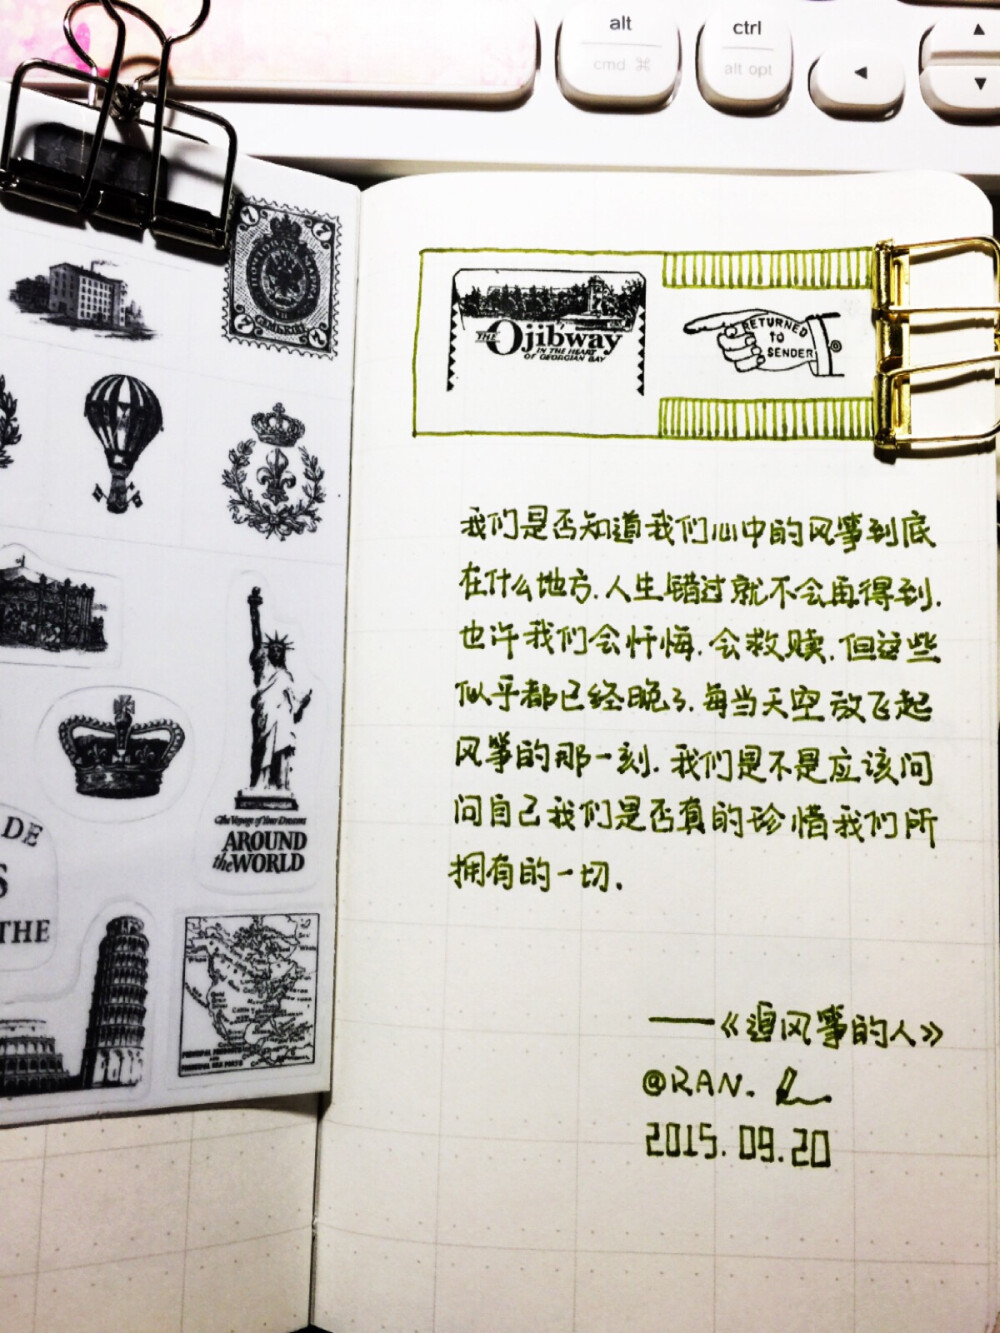 alt
cmd ⌘
ctrl
alt opt
7
7
7
7
THE Ojibway
IN THE HEART
OF GEORGIAN BAY
RETURNED
TO
SENDER
我们是否知道我们心中的风筝到底
在什么地方.人生错过就不会再得到.
也许我们会忏悔.会救赎.但这些
似乎都已经晚了.每当天空放飞起
风筝的那一刻.我们是不是应该问
问自己我们是否真的珍惜我们所
拥有的一切.
——《追风筝的人》
@RAN.
2015.09.20
The Voyage of Your Dreams
AROUND
the WORLD
DE
S
THE